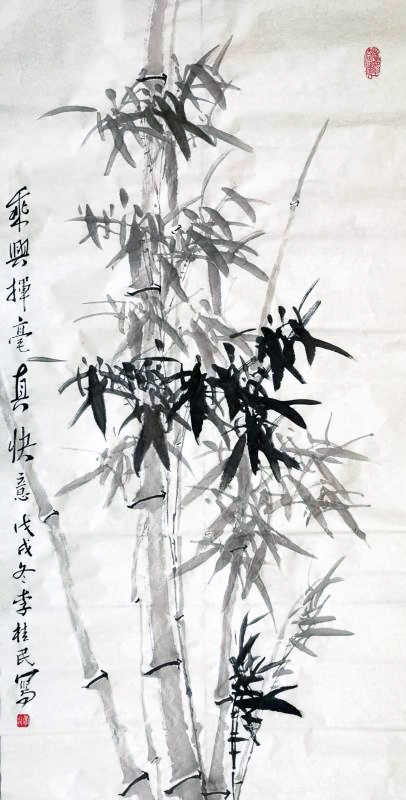 乘興揮毫真快意戊戌冬李桂民寫